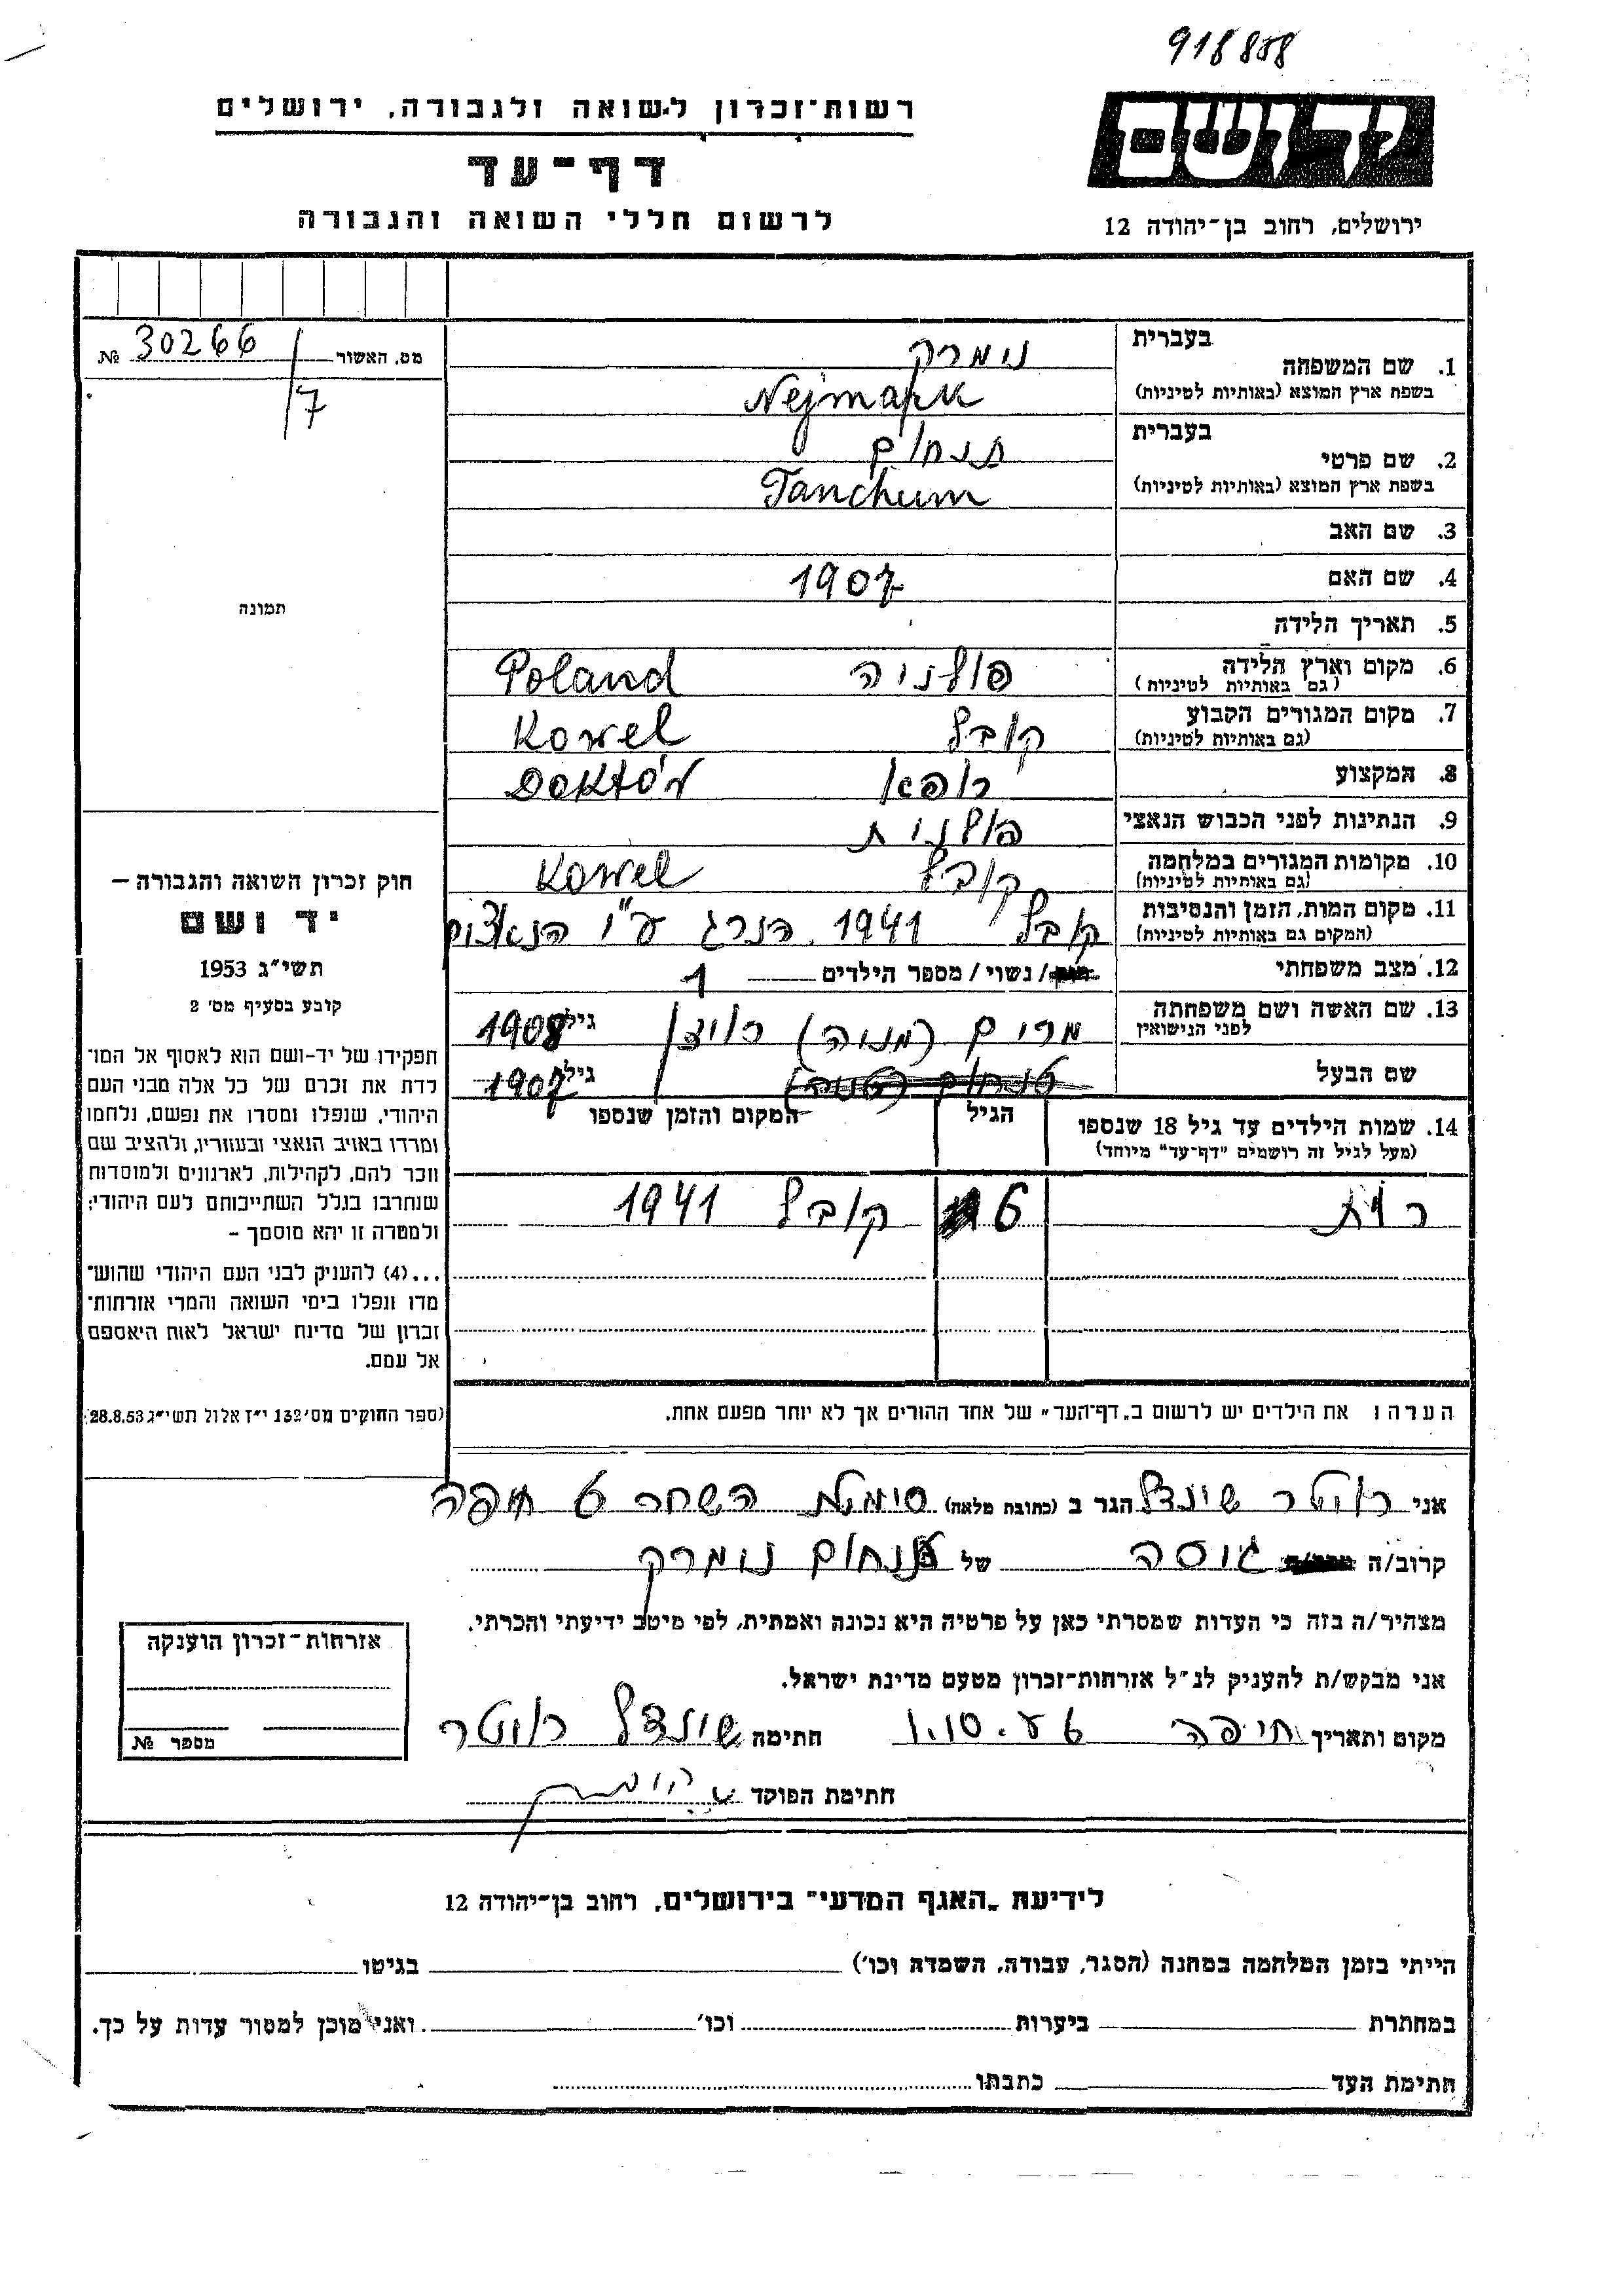 918858
ידושם
ירושלים, רחוב בן־יהודה 12
רשות־זכרון לשואה ולגבורה, ירושלים
דף־עד
לרשום חללי השואה והגבורה
מס. האשור 30266 №
/7
תמונה
בעברית
1. שם המשפחה נומרק
בשפת ארץ המוצא (באותיות לטיניות) Nejmapk
בעברית
2. שם פרטי תנחום
בשפת ארץ המוצא (באותיות לטיניות) Tanchum
3. שם האב
4. שם האם 1907
5. תאריך הלידה
6. מקום וארץ הלידה פולניה Poland
(גם באותיות לטיניות)
7. מקום המגורים הקבוע קובל Kowel
(גם באותיות לטיניות)
8. המקצוע רופא Doktór
9. הנתינות לפני הכבוש הנאצי פולנית
10. מקומות המגורים במלחמה קובל Kowel
(גם באותיות לטיניות)
11. מקום המות, הזמן והנסיבות קובל 1941 הנרג ע"י הנאצים
(המקום גם באותיות לטיניות)
12. מצב משפחתי / נשוי / מספר הילדים 1
13. שם האשה ושם משפחתה מרים (מניה) גיל 1908
לפני הנישואין
שם הבעל תנחום גיל 1907
14. שמות הילדים עד גיל 18 שנספו הגיל המקום והזמן שנספו
(מעל לגיל זה רושמים "דף־עד" מיוחד)
רות 6 קובל 1941
חוק זכרון השואה והגבורה –
יד ושם
תשי"ג 1953
קובע בסעיף מס' 2
תפקידו של יד-ושם הוא לאסוף אל המו־
לדת את זכרם של כל אלה מבני העם
היהודי, שנפלו ומסרו את נפשם, נלחמו
ומרדו באויב הנאצי ובעוזריו, ולהציב שם
וזכר להם, לקהילות, לארגונים ולמוסדות
שנחרבו בגלל השתייכותם לעם היהודי;
ולמטרה זו יהא מוסמך –
...(4) להעניק לבני העם היהודי שהוש־
מדו ונפלו בימי השואה והמרי אזרחות־
זכרון של מדינת ישראל לאות היאספם
אל עמם.
(ספר החוקים מס' 132 י"ז אלול תשי"ג 28.8.53)
הערה: את הילדים יש לרשום ב„דף־העד" של אחד ההורים אך לא יותר מפעם אחת.
אני רוטר שינדל הגר ב (כתובת מלאה) סימטת השחר 6 חיפה
קרוב/ה גיסה של תנחום נומרק
מצהיר/ה בזה כי העדות שמסרתי כאן על פרטיה היא נכונה ואמתית, לפי מיטב ידיעתי והכרתי.
אני מבקש/ת להעניק לנ"ל אזרחות־זכרון מטעם מדינת ישראל.
מקום ותאריך חיפה 1.10. חתימה שינדל רוטר
חתימת הפוקד
אזרחות־זכרון הוענקה
מספר №
לידיעת „האגף המדעי" בירושלים, רחוב בן־יהודה 12
הייתי בזמן המלחמה במחנה (הסגר, עבודה, השמדה וכו') בגיטו
במחתרת ביערות וכו' ואני מוכן למסור עדות על כך.
חתימת העד כתבתו